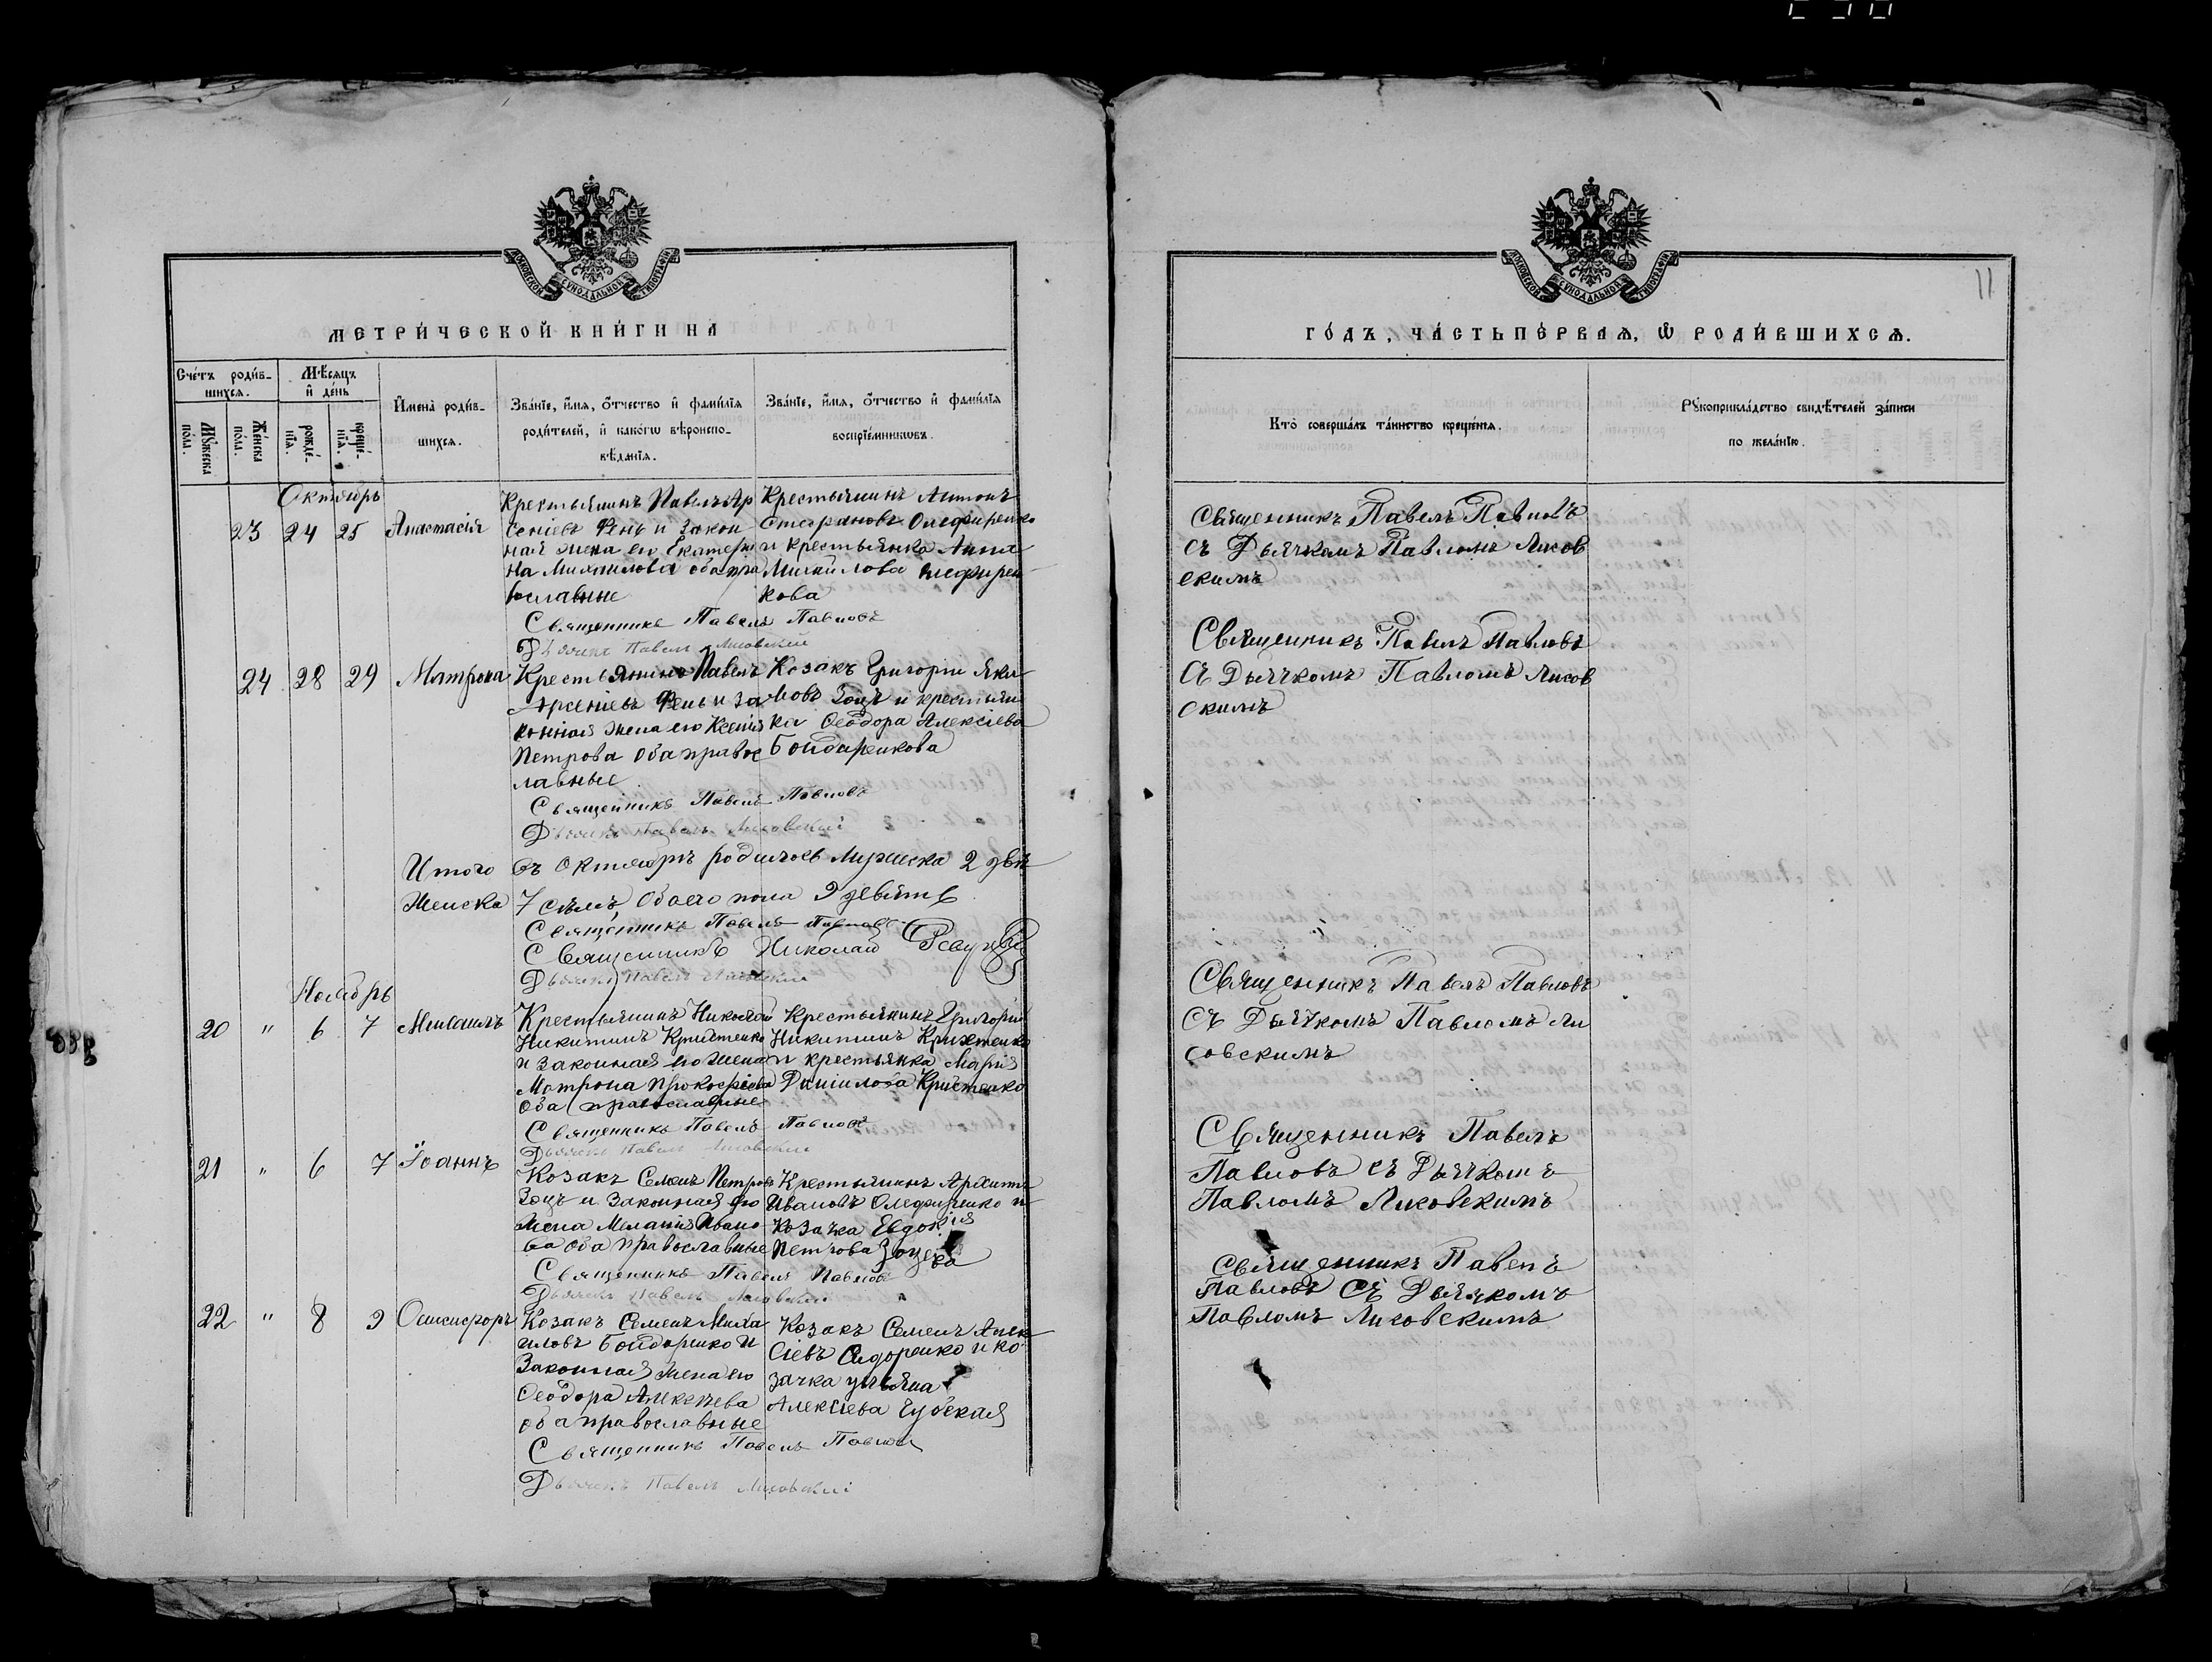 МОСКОВСКОЙ СѴНОДАЛЬНОЙ ТИПОГРАФІИ
МЕТРИ́ЧЕСКОЙ КНИ́ГИ НА
Сче́тъ роди́в-
шихся.
Мѣ́сяцъ
и҆ де́нь
Мꙋ́жеска
по́ла.
Же́нска
по́ла.
рожде́-
нїѧ.
креще́-
нїѧ.
И҆мена̀ роди́в-
шихся.
Зва́нїе, и҆́мѧ, ѻ҆́тчество и҆ фами́лїѧ
роди́телей, и҆ како́гѡ вѣроиспо-
вѣ́данїѧ.
Зва́нїе, и҆́мѧ, ѻ҆́тчество и҆ фами́лїѧ
воспрїе́мникѡвъ.
Октябрь
23 24 25 Анастасія
Крестьянинъ Павелъ Ар
сеніевъ Фень и закон
ная жена его Екатери
на Михаилова оба пра
вославные
Крестьянинъ Антонъ
Стефановъ Олефиренко
и крестьянка Анна
Михаилова Олефирен
кова
Священникъ Павелъ Павловъ
Дьячекъ Павелъ Лисовский
24 28 29 Матрона
Крестьянинъ Павелъ
Арсеніевъ Фень и за
конная жена его Ксенія
Петрова оба правос
лавные
Козакъ Григорій Яки
мовъ Зоцъ и крестьян
ка Ѳеодора Алексіева
Бондаренкова
Священникъ Павелъ Павловъ
Дьячекъ Павелъ Лисовский
Итого въ октябрѣ родилось мужеска 2 двѣ
Женска 7 семь, обоего пола 9 девять
Священникъ Павелъ Павловъ
Священникъ Николай
Дьячекъ Павелъ Лисовский
Ноябрь
20 " 6 7 Михаилъ
Крестьянинъ Николай
Никитинъ Крихтенко
и законная его жена
Матрона Прокофіева
оба православные
Крестьянинъ Григорій
Никитинъ Крихтенко
и крестьянка Марія
Даніилова Крихтенко
Священникъ Павелъ Павловъ
Дьячекъ Павелъ Лисовский
21 " 6 7 Іоаннъ
Козакъ Семенъ Петровъ
Зоцъ и законная его
жена Меланія Ивано
ва оба православные
Крестьянинъ Архипъ
Ивановъ Олефиренко и
козачка Евдокія
Петрова Зоцева
Священникъ Павелъ Павловъ
Дьячекъ Павелъ Лисовский
22 " 8 9 Онисифоръ
Козакъ Семенъ Миха
иловъ Бондаренко и
законная жена его
Ѳеодора Алексѣева
оба православные
Козакъ Семенъ Алек
сіевъ Сидоренко и ко
зачка Ульяна
Алексіева Губская
Священникъ Павелъ Павловъ
Дьячекъ Павелъ Лисовский
МОСКОВСКОЙ СѴНОДАЛЬНОЙ ТИПОГРАФІИ
11
ГО́ДЪ, ЧА́СТЬ ПЕ́РВАѦ, Ѽ РОДИ́ВШИХСѦ.
Кто̀ соверша́лъ та́инство креще́нїѧ.
Рꙋкоприкла́дство свидѣ́телей за́писи
по жела́нїю.
Священникъ Павелъ Павловъ
съ Дьячкомъ Павломъ Лисов
скимъ
Священникъ Павелъ Павловъ
съ Дьячкомъ Павломъ Лисов
скимъ
Священникъ Павелъ Павловъ
съ Дьячкомъ Павломъ Ли
совскимъ
Священникъ Павелъ
Павловъ съ Дьячкомъ
Павломъ Лисовскимъ
Священникъ Павелъ
Павловъ съ Дьячкомъ
Павломъ Лисовскимъ